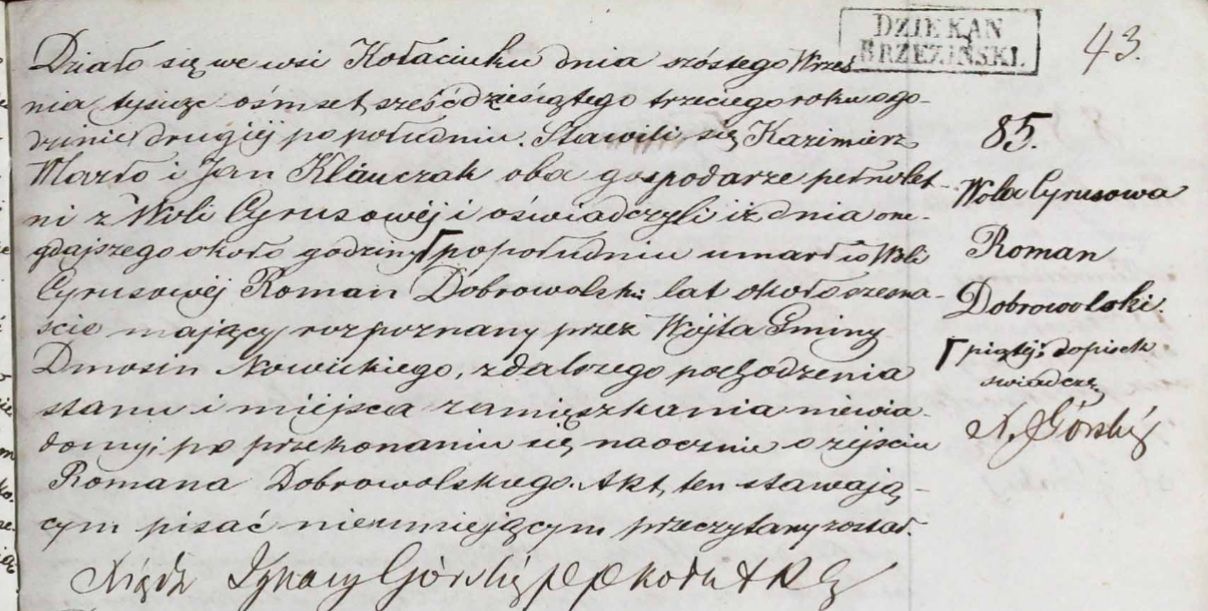 DZIEKAN
BRZEZIŃSKI.
43.
Działo się we wsi Kołaciuku dnia szóstego Wrześ
nia tysiąc ośmset sześćdziesiątego trzeciego roku o go-
dzinie drugiéj po południu. Stawili się Kazimierz
Marło i Jan Klauczak oba gospodarze pełnolet-
ni z Woli Cyrusowéj i oświadczyli iż dnia one-
gdajszego około godziny Γ po południu umarł w Woli
Cyrusowéj Roman Dobrowolski lat około szesna-
ście mający rozpoznany przez Wójta Gminy
Dmosin Nowickiego, z dalszego pochodzenia
stanu i miejsca zamięszkania niewia-
domy, po przekonaniu się naocznie o zejściu
Romana Dobrowolskiego. Akt ten stawają-
cym pisać nieumiejącym przeczytany został.
Xiądz Ignacy Górski
85.
Wola Cyrusowa
Roman
Dobrowolski.
Γ piątéj: dopisek
świadczę
X. Górski